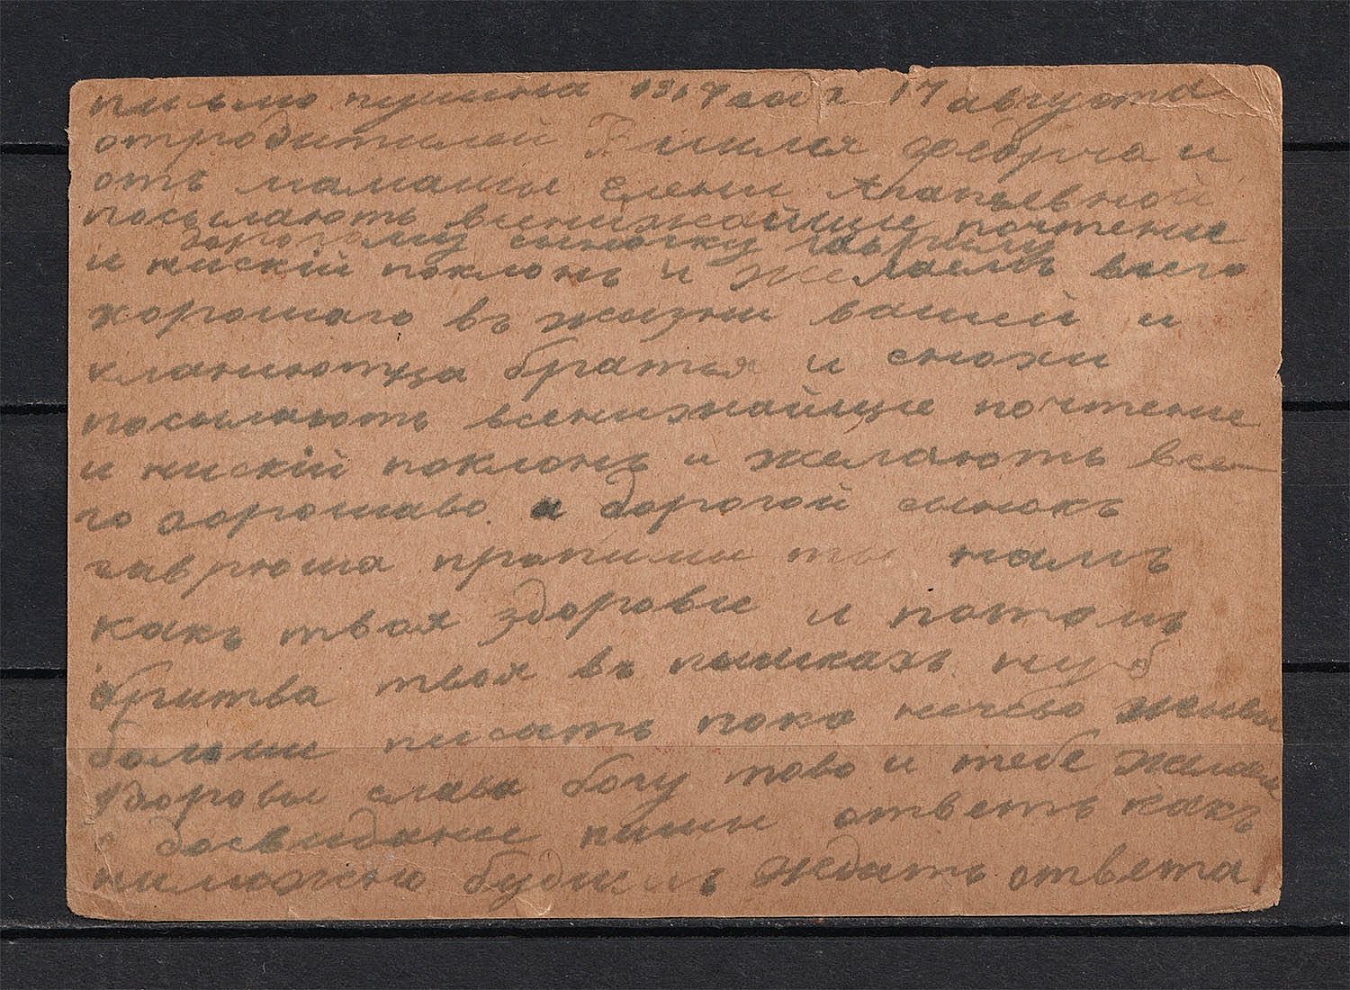 письмо пущина 1917 года 17 августа
отродителей федорча и
отъ мамашы Елени Агапьевной
посылаютъ всенижайщие почтение
дорогому сыночку гаврилу
и нискій поклонъ и желаемъ всего
хорошаго въ жизни вашей и
кланиютца братья и снохи
посылаютъ всенижнайщие почтение
и нискій поклонъ и желаютъ все
го хорошаво а дорогой сынокъ
гаврюша пропишы ты намъ
какъ твоя здоровье и потомъ
бритва твоя въ ну
больше писать пока нечево живы
здоровы слава богу тово и тебе желаим
досвидание пишы ответъ какъ
ниможно будимъ ждать ответа